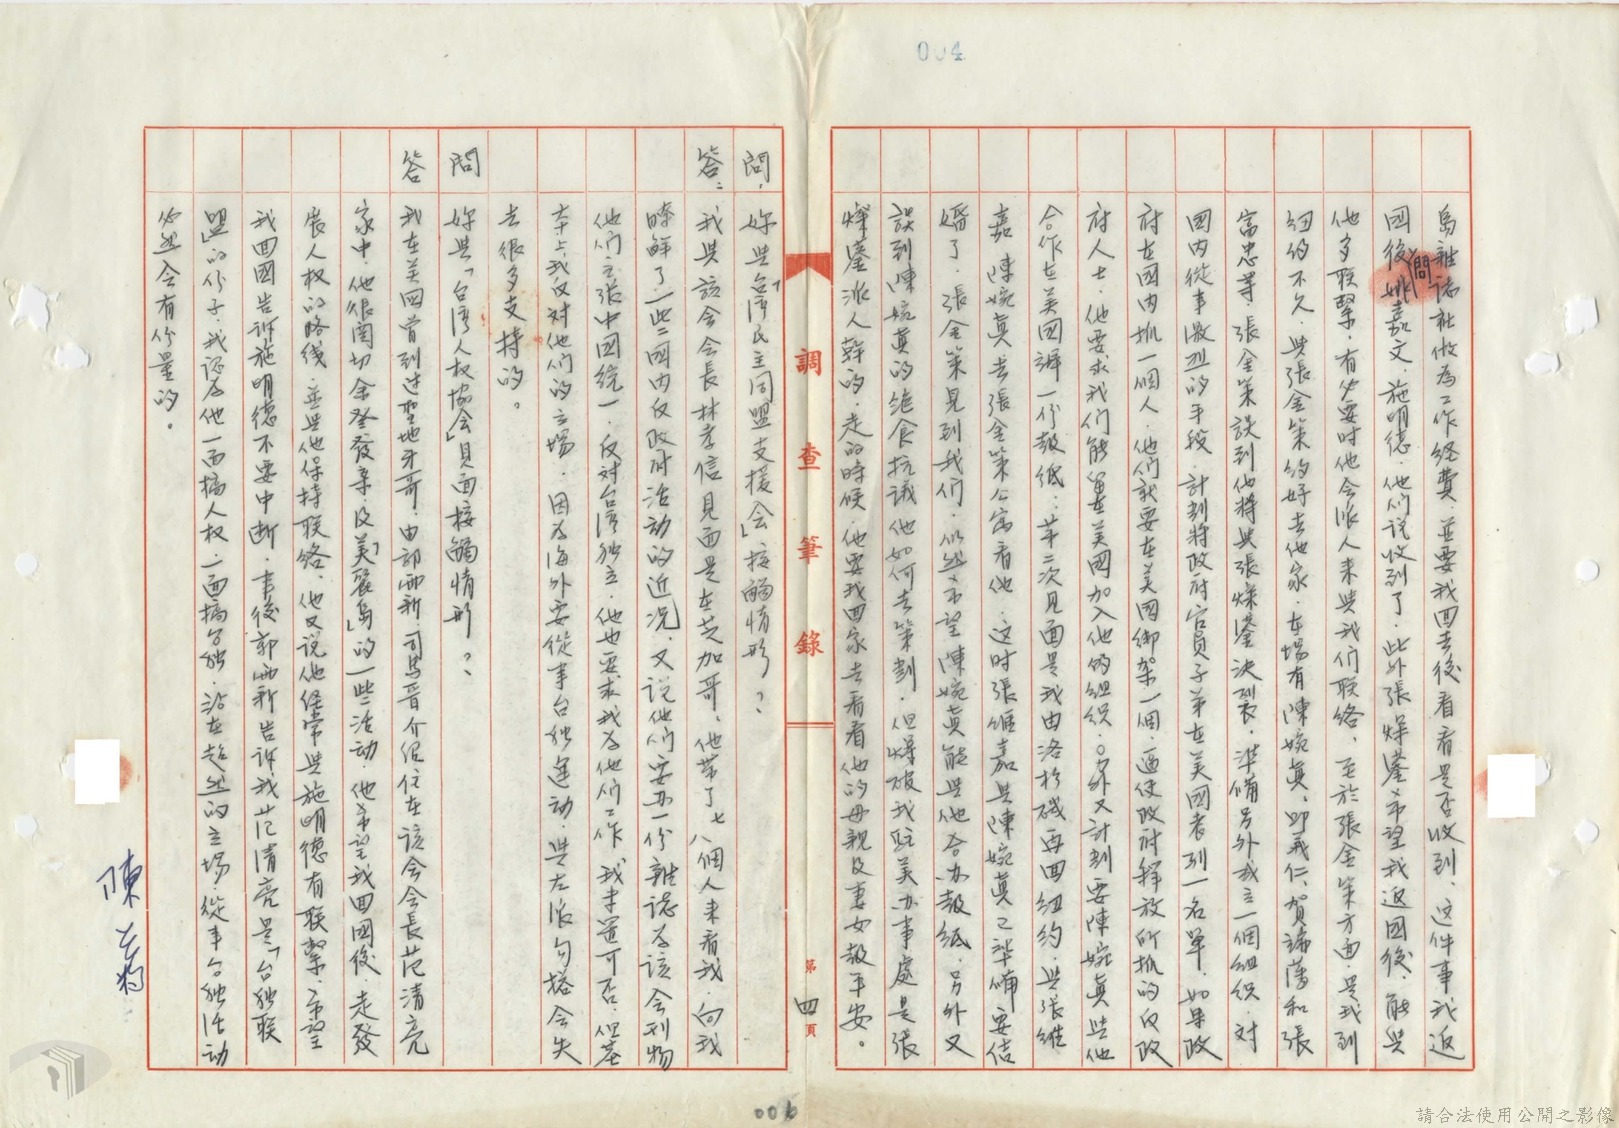 004
島雜誌社做為工作経費，並要我回去後看看是否收到、这件事我返
國後問姚嘉文、施明德，他们說收到了，此外張燦鍙希望我返國後，能與
他多联繫，有必要时他会派人来與我们联络，至於張金策方面，是我到
纽约不久，與張金策约好去他家，在場有陳婉真、邱義仁、賀端藩和張
富忠等，張金策談到他將與張燦鍙決裂，準備另外成立一個组织，対
國内從事激烈的手段，計劃將政府官員子弟在美國者列一名單，如果政
府在國内抓一個人，他们就要在美国绑架一個，逼使政府释放所抓的反政
府人士，他要求我们能留在美國加入他的组织，另外又計劃要陳婉真與他
合作在美國辦一份報纸；第二次見面是我由洛杉磯再回纽约，與張維
嘉、陳婉真去張金策公寓看他，这时張維嘉與陳婉真已準備要结
婚了，張金策見到我们，仍然希望陳婉真能與他合办報紙，另外又
談到陳婉真的绝食抗議他如何去策劃，但爆破我駐美办事處是張
燦鍙派人幹的，走的時候，他要我回家去看看他的母親及妻女報平安。
調查筆錄
第四頁
問：妳與「台湾民主同盟支援会」接觸情形？
答：我與该会会长林孝信見面是在芝加哥，他带了七、八個人来看我，向我
瞭解了一些國内反政府活动的近况，又說他们要办一份雜誌为该会刊物
他们主張中國统一，反対台湾独立，他也要求我为他们工作，我未置可否，但基
本上我反対他们的立場，因为海外要從事台独運动，與左派勾搭会失
去很多支持的。
問 妳與「台湾人权協会」見面接觸情形？
答 我在美西曾到过聖地牙哥，由郭西新、司馬晋介绍住在该会会長范清亮
家中，他很関切余登發案，及「美麗島」的一些活动，他希望我回國後，走發
展人权的路线，並與他保持联络，他又說他经常與施明德有联繫，希望
我回國告訴施明德不要中断，事後郭西新告訴我范清亮是「台独联
盟」的份子，我認为他一面搞人权，一面搞台独，站在超然的立場，從事台独活动
必然会有份量的。
006
請合法使用公開之影像